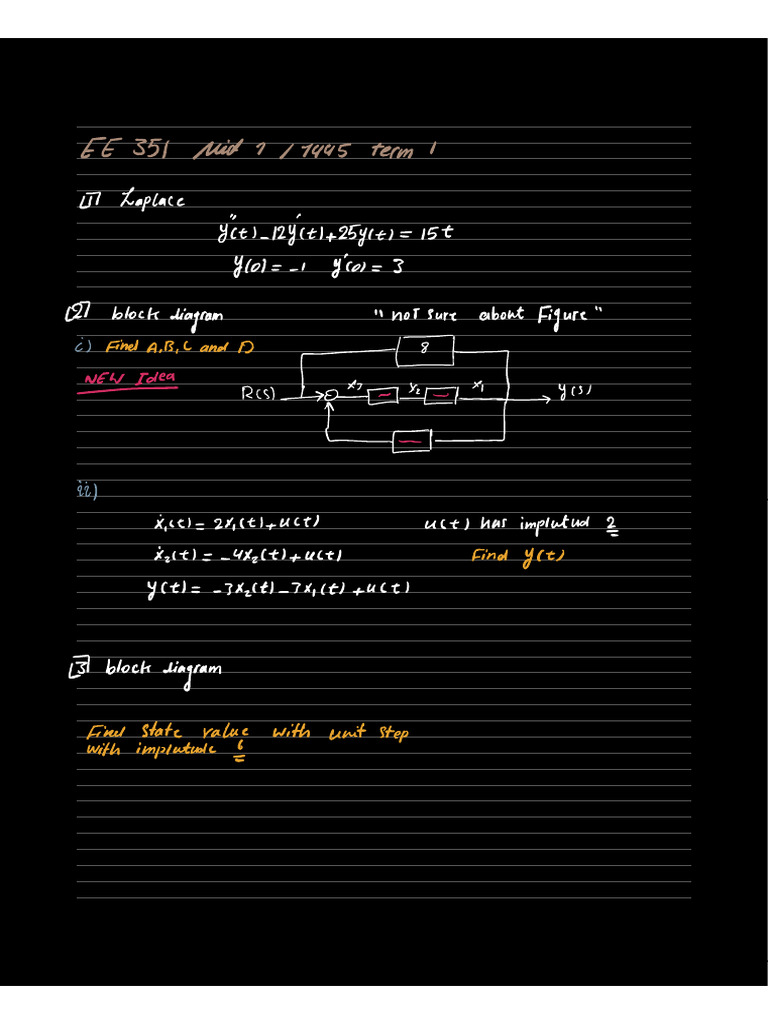 EE 351 Mid 1 / 1445 term 1
[1] Laplace
y''(t) - 12y'(t) + 25y(t) = 15t
y(0) = -1 y'(0) = 3
[2] block diagram "not sure about Figure"
i) Find A, B, C and D
8
NEW Idea
R(s) x3 x2 x1 y(s)
ii)
ẋ₁(t) = 2x₁(t) + u(t) u(t) has implutud 2
ẋ₂(t) = -4x₂(t) + u(t) Find y(t)
y(t) = -3x₂(t) - 3x₁(t) + u(t)
[3] block diagram
Find state value with unit step
with implutude 6